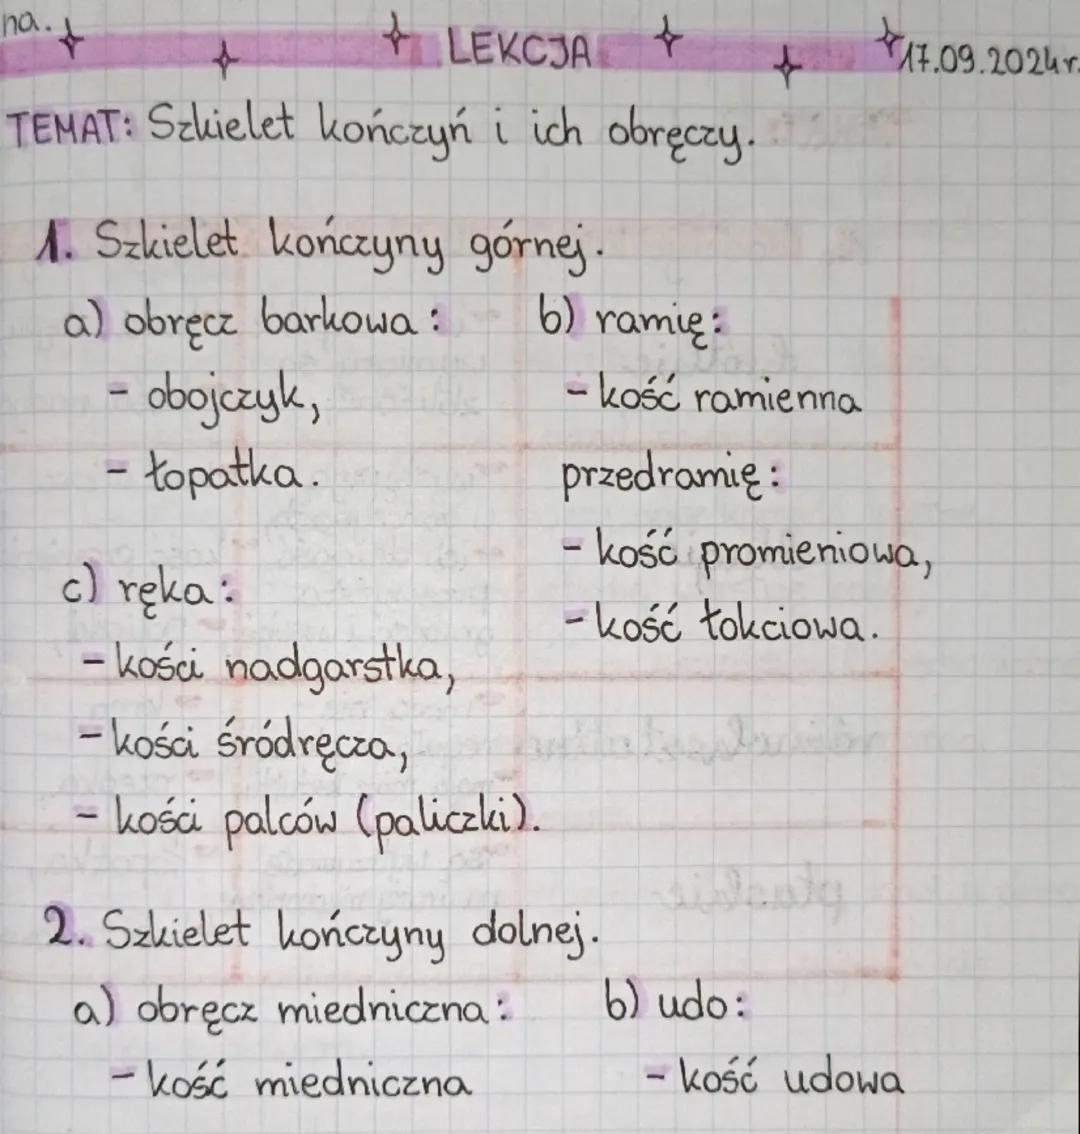 na.
LEKCJA
17.09.2024r.
TEMAT: Szkielet kończyń i ich obręczy.
1. Szkielet kończyny górnej.
a) obręcz barkowa:
- obojczyk,
- łopatka.
b) ramię:
- kość ramienna
przedramię:
- kość promieniowa,
- kość łokciowa.
c) ręka:
- kości nadgarstka,
- kości śródręcza,
- kości palców (paliczki).
2. Szkielet kończyny dolnej.
a) obręcz miedniczna:
- kość miedniczna
b) udo:
- kość udowa